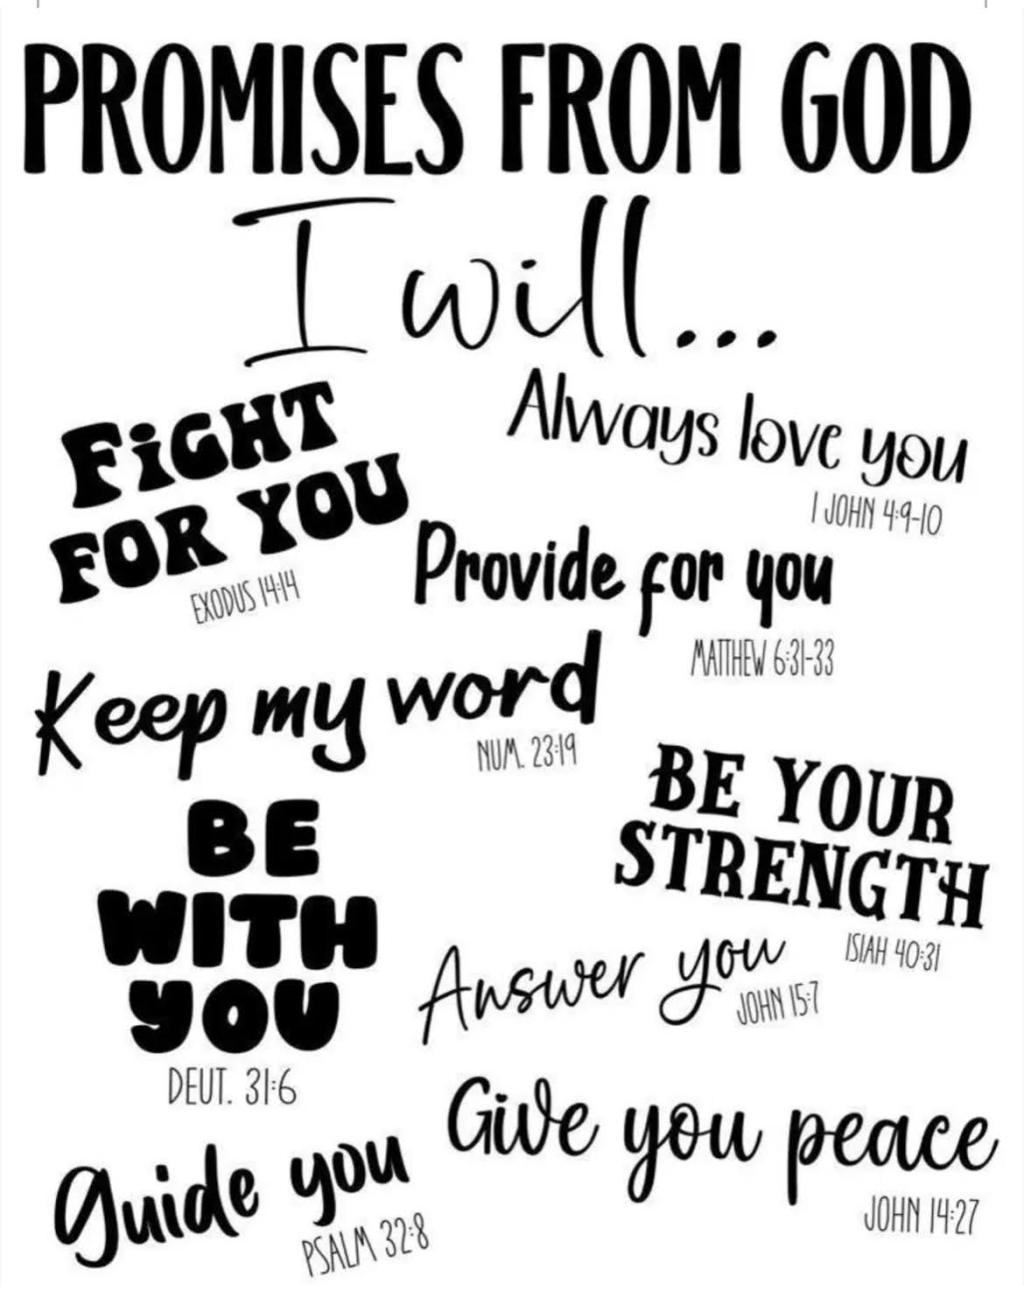 PROMISES FROM GOD
I will...
FiGHT
FOR YOU
EXODUS 14:14
Always love you
1 JOHN 4:9-10
Provide for you
MATTHEW 6:31-33
Keep my word
NUM. 23:19
BE YOUR
STRENGTH
ISIAH 40:31
BE
WITH
YOU
DEUT. 31:6
Answer you
JOHN 15:7
Give you peace
JOHN 14:27
Guide you
PSALM 32:8